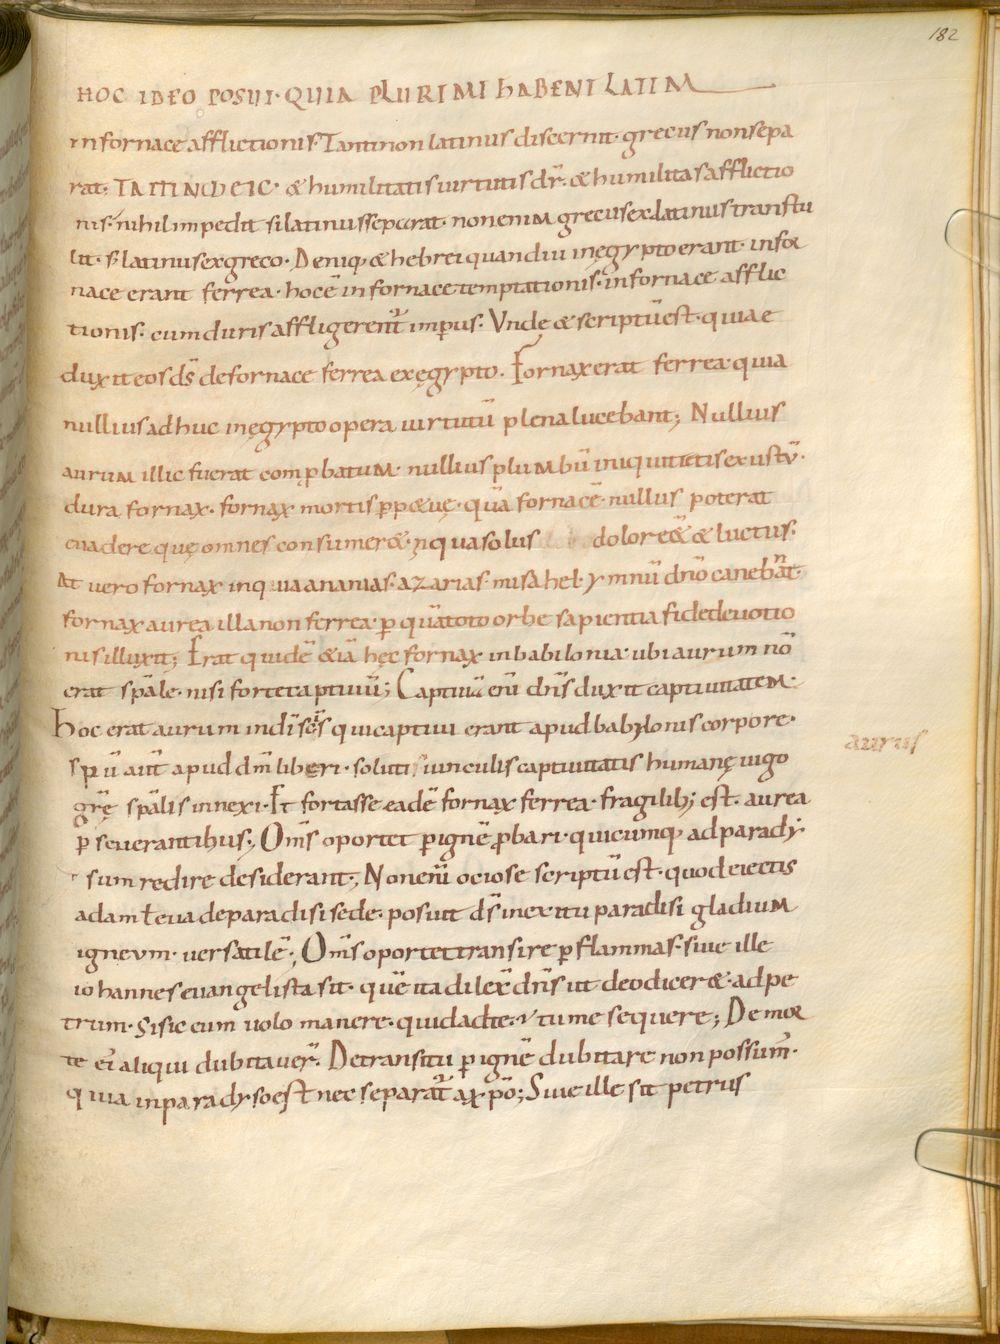 182
HOC IDEO POSUI· QUIA PLURIMI HABENT LATINI
in fornace afflictionis· Tantin non latinus discernit· grecus non sepa
rat· TAΠΙΝΩCΕΙC· & humilitatis uirtutis dr̄· & humilitas afflictio
nis· nihil impedit si latinus separat· non enim grecus ex latinus transtu
lit· s; latinus ex greco· Deniq; & hebrei quandiu in ęgypto erant· in for
nace erant ferrea· hoc ē in fornace temptationis· in fornace afflic
tionis· cum duris affligerent᷑ imp̄iis· Vnde & scriptū est· quia e
duxit eos d̄s de fornace ferrea ex ęgypto. Fornax erat ferrea quia
nullius adhuc in ęgypto opera uirtutū plena lucebant; Nullius
aurum illic fuerat comp̄batum· nullius plumbū iniquitatis exustū·
dura fornax· fornax mortis p̄p&uę· quā fornacē nullus poterat
euadere quę omnes consumer&· in qua solus dolor eēt & luctus·
At uero fornax in qua ananias· azarias· misahel· ymnū dn̄o canebāt·
fornax aurea illa non ferrea· p̄ quā toto orbe sapientia fide deuotio
nis illuxit; Erat quidē &iā hęc fornax in babilonia· ubi aurum nō
erat sp̄ale· nisi forte captiuū; Captiuā eni̅ dn̄s duxit captiuitatem·
Hoc erat aurum in di s̄cis qui captiui erant apud babylonis corpore·
aurus
sp̄ū aūt apud dm̄ liberi· soluti uinculis captiuitatis humanę iugo
gr̄ę sp̄alis innexi· Et fortasse eadē fornax ferrea· fragilib; est· aurea
p̄seuerantibus; Om̄s oportet p̄ ignē p̄bari· quicumq; ad parady
sum redire desiderant; Non eni̅ ociose scriptū est· quod eiectis
adam ł eua de paradisi sede· posuit d̄s in exitu paradisi gladium
igneum· uersatilē·; Om̄s oportet transire p̄ flammas· siue ille
iohannes euangelista sit· quē ita dilex̄ dn̄s ut de eo dicer&· ad pe
trum· Si sic eum uolo manere· quid ad te· tu me sequere; De mor
te ei̅ aliqui dubitauer̄· De transitu p̄ ignē dubitare non possum̄·
quia in paradyso est nec separat᷑ a xp̄o; Siue ille sit petrus